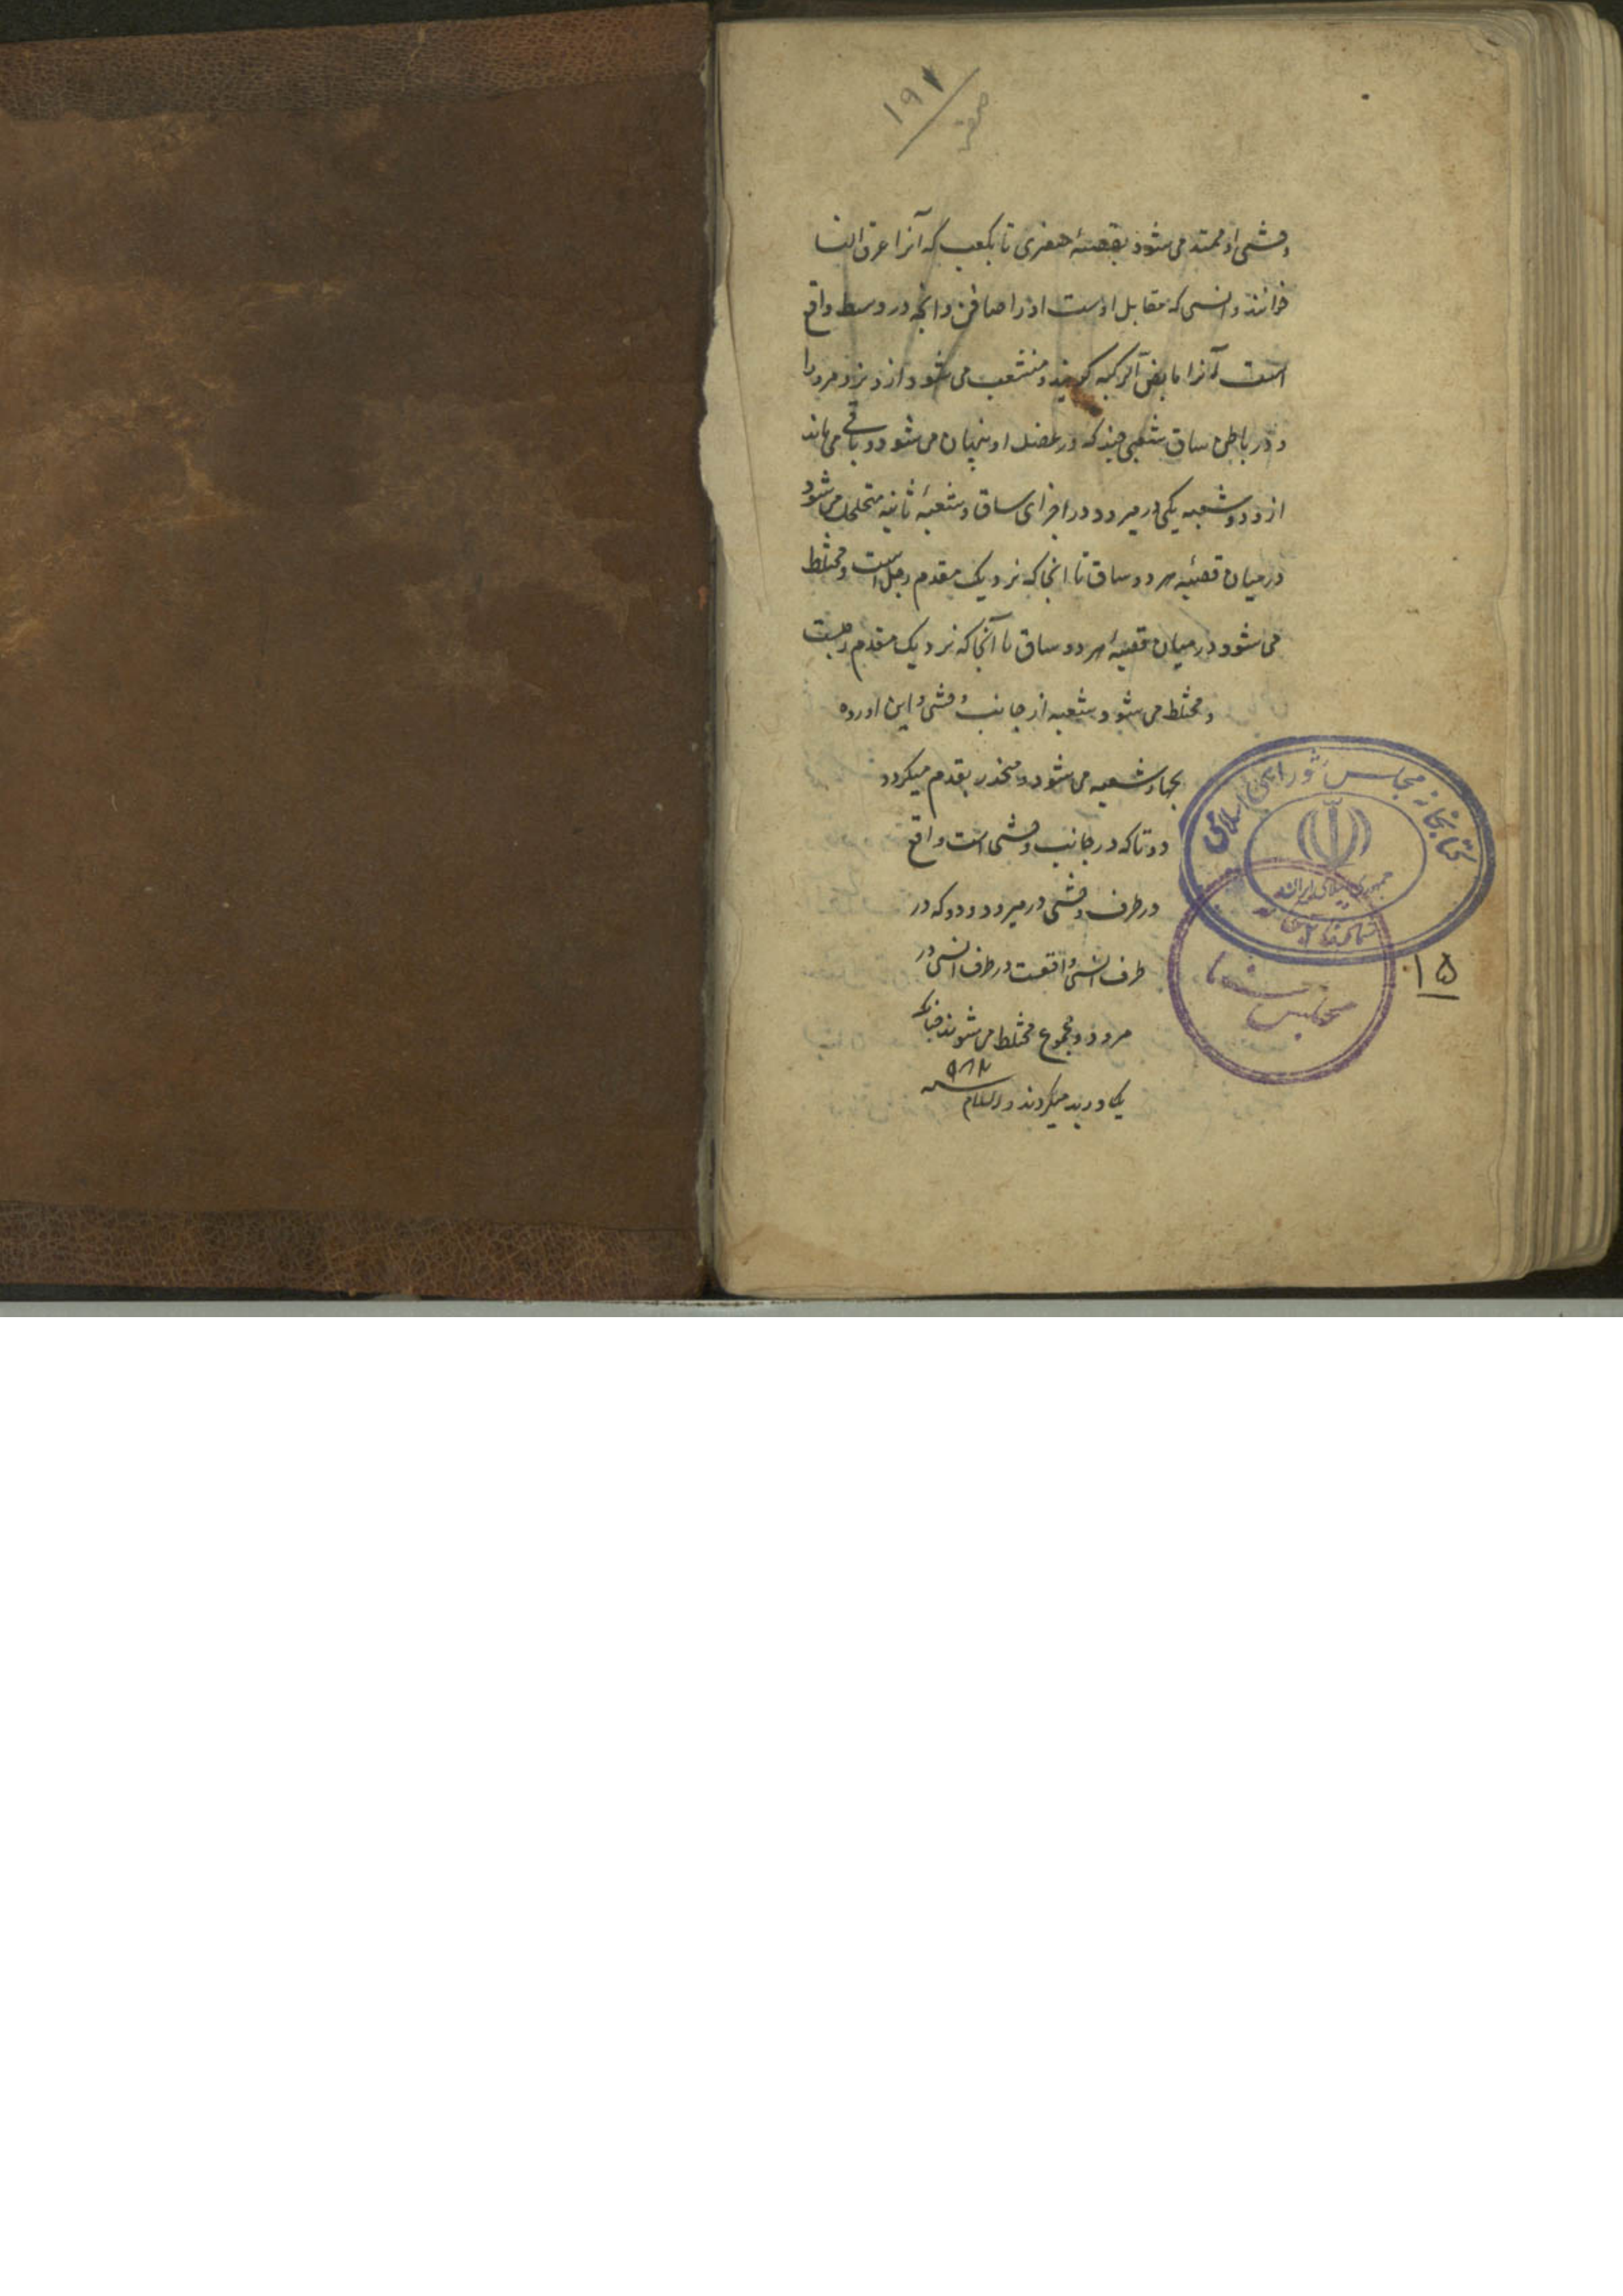 ۱۹۲
صفحه
وحشی او ممتد می شود بقصبهٔ صغری تا بکعب که آنرا عرق النسا
خوانند و انسی که مقابل اوست او را صافن و انچه در وسط واقع
است آنرا مابض الرکبه کویند و منشعب می شود از و نزد مرور
و در باطن ساق شعبی چند که در عضل او پنهان می شود و باقی می ماند
از و دو شعبه یکی در میرود در اجزای ساق و شعبهٔ ثانیه متخلل می شود
در میان قصبهٔ هر دو ساق تا انجا که نزدیک مقدم رجل است و مختلط
می شود در میان قصبهٔ هر دو ساق تا آنجا که نزدیک مقدم رجلست
و مختلط می شود شعبه از جانب وحشی و این اورده
بچهار شعبه می شود و منحدر بقدم میکردد
دو تا که در جانب وحشی است واقع
در طرف وحشی در میرود و دو که در
طرف انسی واقعست در طرف انسی در
میرود و مجموع مختلط می شوند چنانکه
یک ورید میکردند والسلام
سنه ۹۸۲
کتابخانه مجلس شورای اسلامی
جمهوری اسلامی ایران
مجلس شورا
۱۵